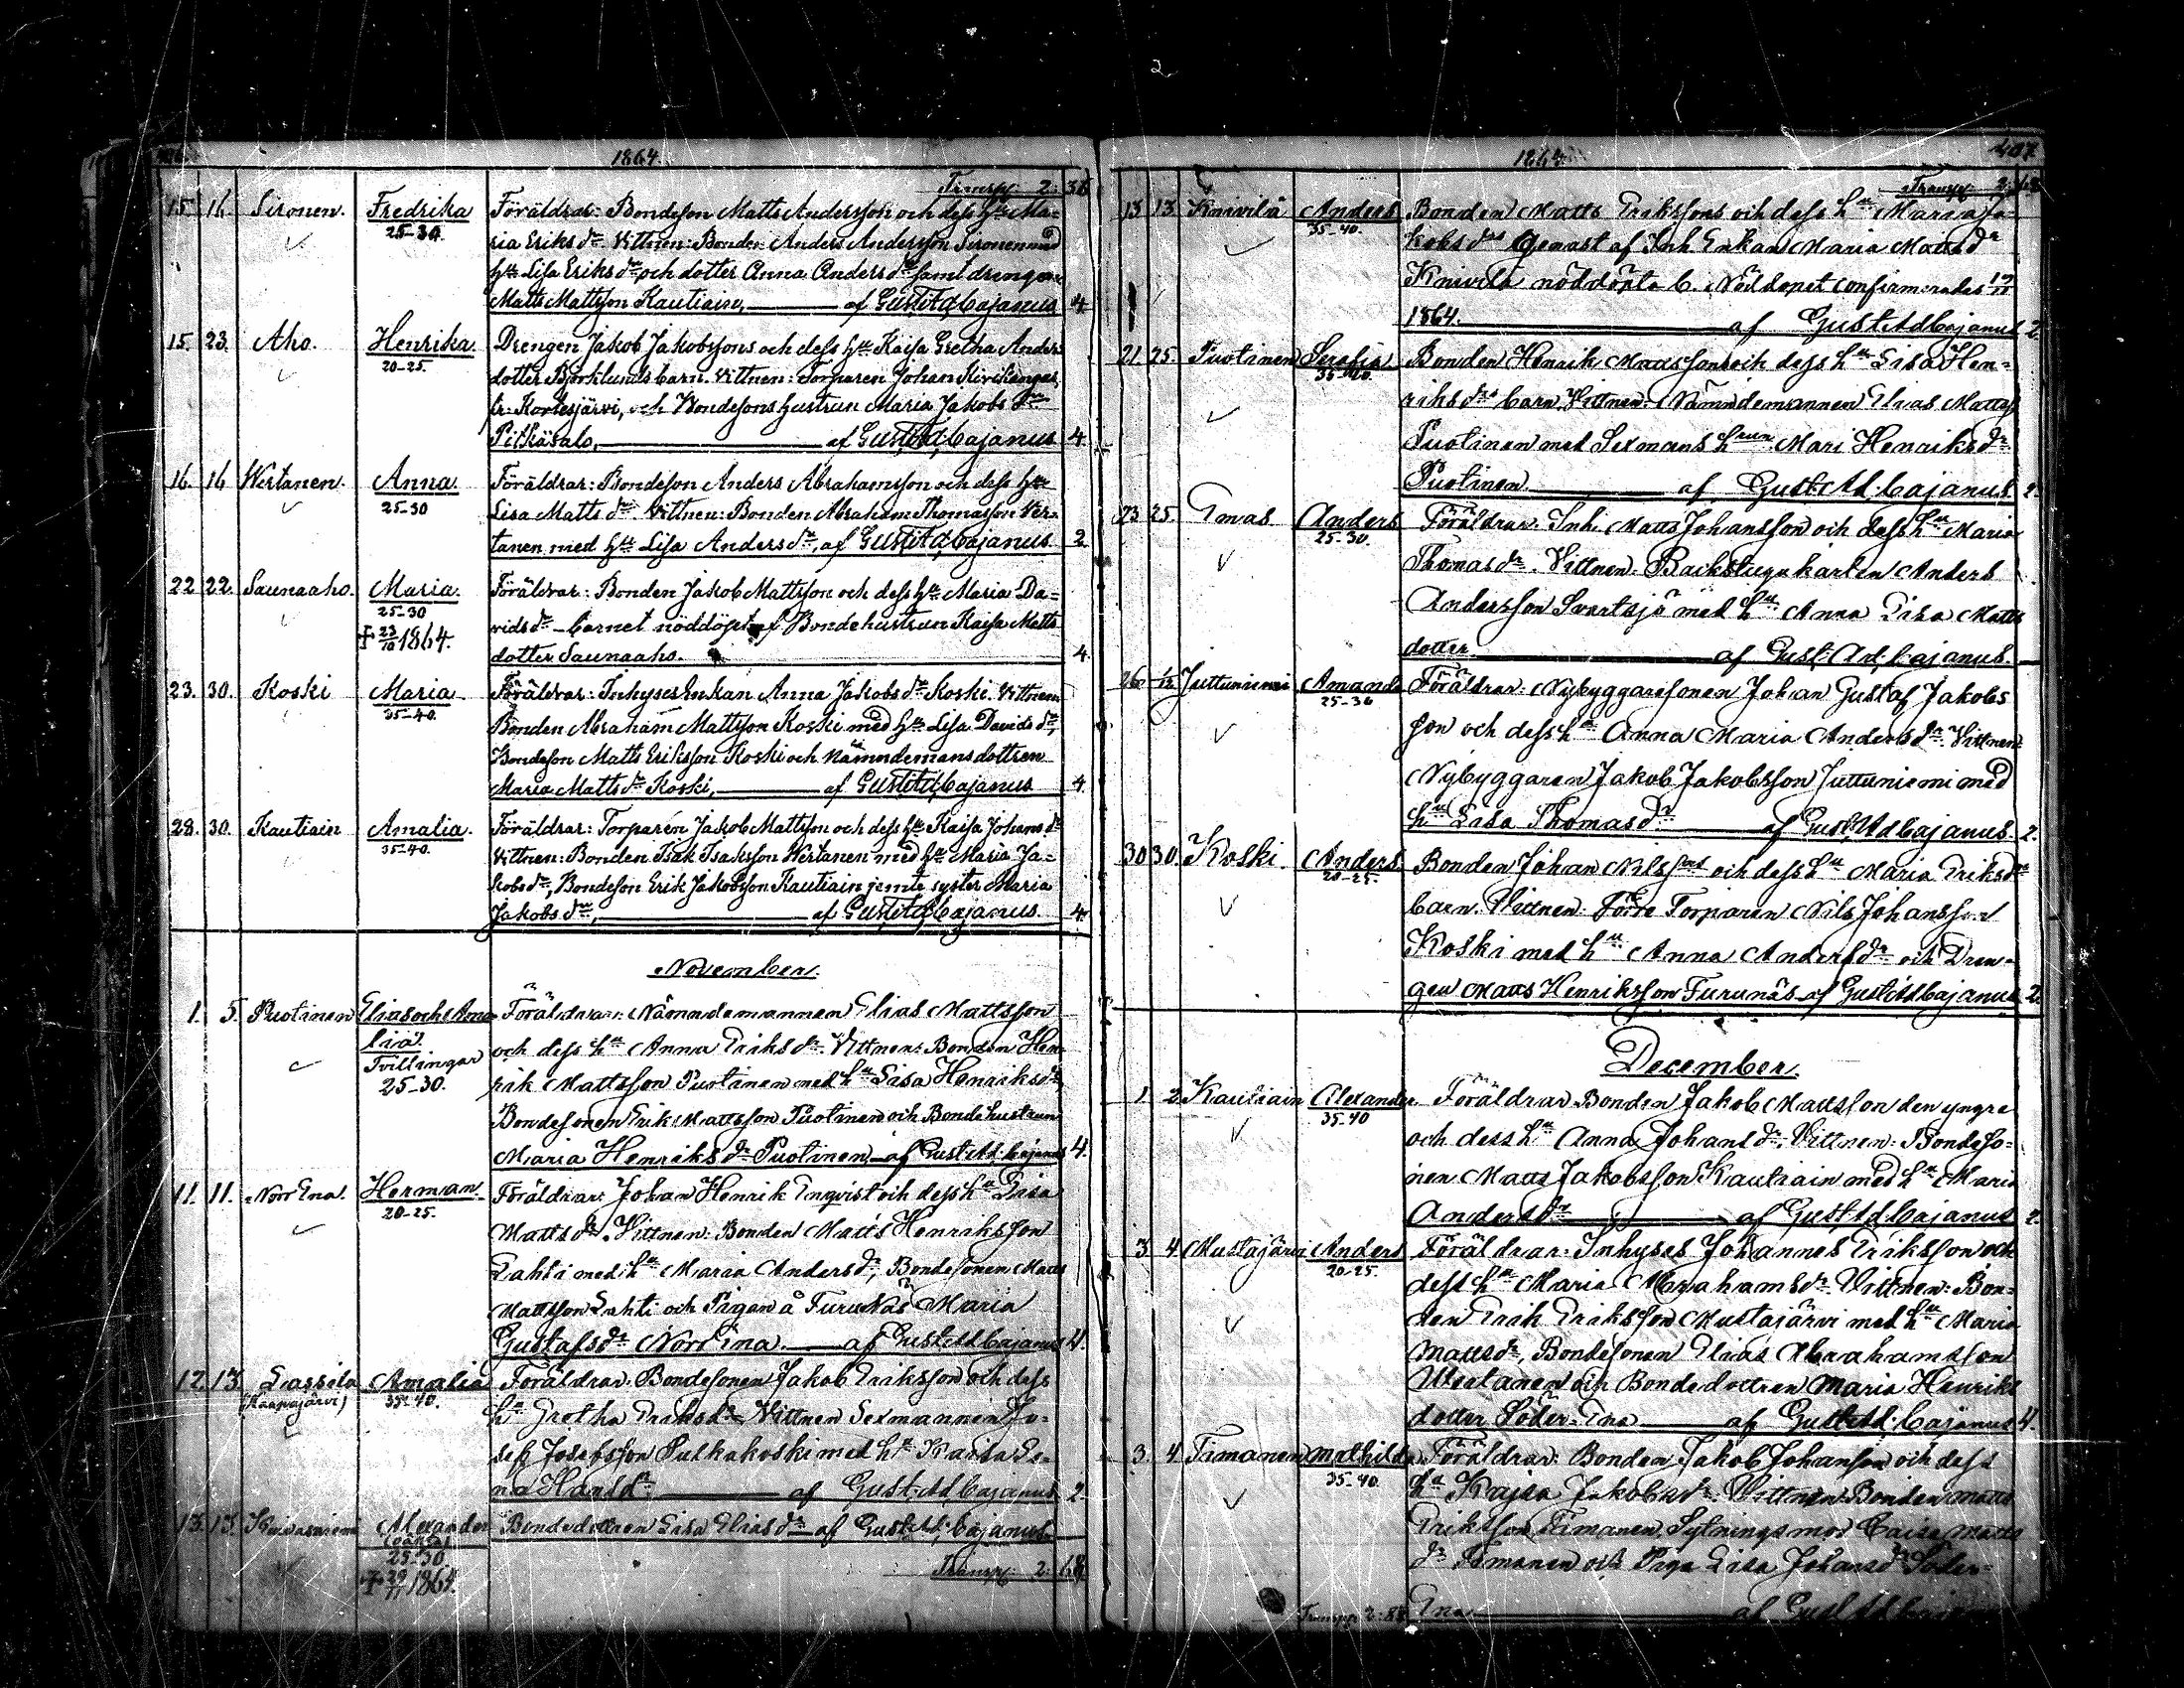 1864.
Transp. 2: 38
15. 16. Sironen. Fredrika Föräldrar: Bondeson Matts Andersson och dess h:u Ma-
25-30. ria Eriks d:r Vittnen: Bonden Anders Andersson Sironen med
h:u Lisa Eriks d:r och dotter Anna Anders d:r samt drengen
Matts Mattsson Kautiain, af Gust. Ad. Cajanus 4
15. 23. Aho. Henrika Drengen Jakob Jakobssons och dess h:u Kaisa Gretha Anders
20-25. dotter Björklunds barn. Vittnen: Torparen Johan Kivikangas
fr. Kortesjärvi, och Bondesons hustrun Maria Jakobs d:r
Pitkäsalo, af Gust. Ad. Cajanus 4
16. 16 Wertanen. Anna Föräldrar: Bondeson Anders Abrahamsson och dess h:u
25-30 Lisa Matts d:r. Vittnen: Bonden Abraham Thomasson Ver-
tanen med h:u Lisa Anders d:r, af Gust. Ad. Cajanus 2
22 22. Saunaaho. Maria. Föräldrar: Bonden Jakob Mattsson och dess h:u Maria Da-
25-30 vids d:r Barnet nöddöpt af Bondehustrun Kaisa Matts
† 23/10 1864. dotter Saunaaho. 4.
23. 30. Koski Maria Föräldrar: Inhyses Enkan Anna Jakobs d:r Koski. Vittnen
35-40. Bonden Abraham Mattsson Koski med h:u Lisa Davids d:r,
Bondeson Matts Eriksson Koski och Nämndemansdottren
Maria Matts d:r Koski, af Gust. Ad. Cajanus 4
28. 30. Kautiain Amalia. Föräldrar: Torparen Jakob Mattsson och dess h:u Kaisa Johans d:r
35-40. Vittnen: Bonden Isak Isaksson Wertanen med h:u Maria Ja-
kobs d:r, Bondeson Erik Jakobsson Kautiain jemte syster Maria
Jakobs d:r, af Gust. Ad. Cajanus. 4
November.
1. 5. Puotinen Elias och Ama- Föräldrar: Nämndemannen Elias Mattsson
lia. och dess h:u Anna Eriks d:r. Vittnen: Bonden Hen-
Tvillingar rik Mattsson Puotinen med h:u Lisa Henriks d:r
25-30. Bondesonen Erik Mattsson Puotinen och Bondehustrun
Maria Henriks d:r Puotinen, af Gust. Ad. Cajanus 4.
11. 11. Norr Ena. Herman. Föräldrar: Johan Henrik Enqvist och dess h:u Lisa
20-25. Matts d:r. Vittnen: Bonden Matts Henriksson
Lahti med h:u Maria Anders d:r, Bondesonen Matts
Mattsson Lahti och Pigan å Furunäs Maria
Gustafs d:r Norr Ena. af Gust. Ad. Cajanus 4.
12. 13. Lassila Amalia Föräldrar: Bondesonen Jakob Eriksson och dess
35-40. h:u Gretha Eriks d:r Vittnen Sexmannen Jo-
sef Josefsson Pulkakoski med h:u Kaisa Le-
na Hans d:r af Gust. Ad. Cajanus 2.
13. 13. Alexander Bondedottren Lisa Elias d:r af Gust. Ad. Cajanus
(oäkta)
25-30.
† 29/11 1864. Transp. 2: 68
1864
407
Transp. 2: 68
13 13 Knivilä Anders Bonden Matts Erikssons och dess h:u Maria Ja-
35-40. kobs d:rs Genast af Inh. Enkan Maria Matts d:r
Knivilä nöddöpta b. Nöddopet confirmerades
1864. af Gust. Ad. Cajanus 2.
21. 25. Puotinen Serafia Bonden Henrik Mattssons och dess h:u Lisa Hen-
35-40. riks d:rs barn. Vittnen: Nämndemannen Elias Mattss
Puotinen med Sexmans h:run Mari Henriks d:r
Puotinen. af Gust. Ad. Cajanus 2.
23 25. Emas Anders Föräldrar: Inh. Matts Johansson och dess h:u Maria
25-30. Thomas d:r. Vittnen: Backstugukarlen Anders
Andersson Svartsjö med h:u Anna Lisa Matts
dotter. af Gust. Ad. Cajanus.
26 Juttuniemi Amanda Föräldrar: Nybyggaresonen Johan Gustaf Jakobs
25-30 son och dess h:u Anna Maria Anders d:r. Vittnen:
Nybyggaren Jakob Jakobsson Juttuniemi med
h:u Lisa Thomas d:r af Gust. Ad. Cajanus. 2.
30 30. Koski Anders Bonden Johan Nilssons och dess h:u Maria Eriks d:rs
20-25. barn. Vittnen: Förre Torparen Nils Johansson
Koski med h:u Anna Anders d:r och Dren-
gen Matts Henriksson Furunäs af Gust. Ad. Cajanus 2.
December.
1 2 Kautiain Alexander Föräldrar Bonden Jakob Mattsson den yngre
35-40 och dess h:u Anna Johans d:r. Vittnen: Bondeso-
nen Matts Jakobsson Kautiain med h:u Maria
Anders d:r af Gust. Ad. Cajanus 2.
3 4 Mustajärvi Anders Föräldrar: Inhyses Johannes Eriksson och
20-25. dess h:u Maria Abrahams d:r Vittnen: Bon-
den Erik Eriksson Mustajärvi med h:u Maria
Matts d:r, Bondesonen Elias Abrahamsson
Wertanen och Bondedottren Maria Henriks
dotter Söder-Ena af Gust. Ad. Cajanus 4.
3. 4 Timanen Mathilda Föräldrar: Bonden Jakob Johansson och dess
35-40. h:u Kajsa Jakobs d:r. Vittnen Bonden Matts
Eriksson Timanen, Sytningsmor Caisa Matts
d:r Timanen och Piga Lisa Johans d:r Söder-
Transp. 2: 88 Ena af Gust. Ad. Cajanus